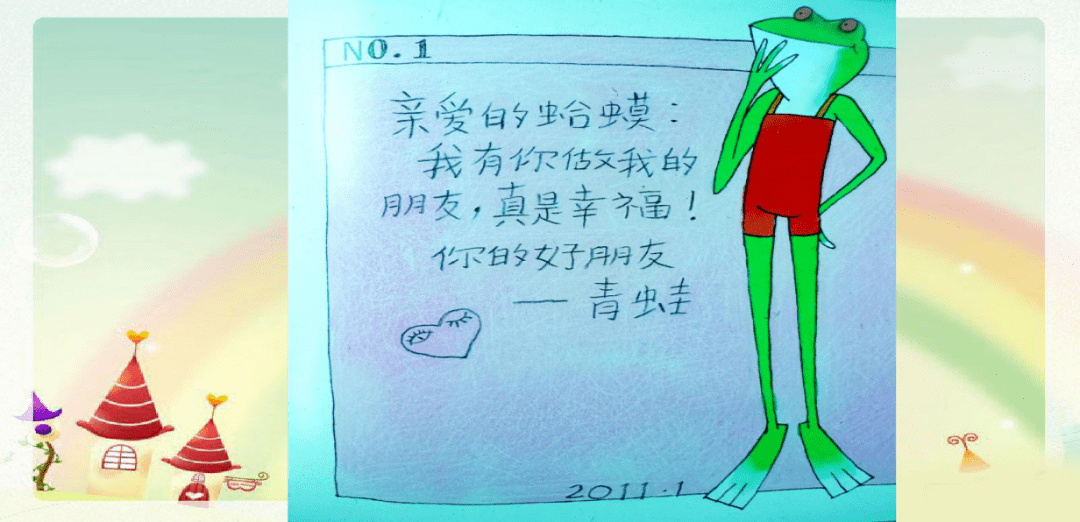 NO.1
亲爱的蛤蟆：
我有你做我的
朋友，真是幸福！
你的好朋友
—— 青蛙
2011.1